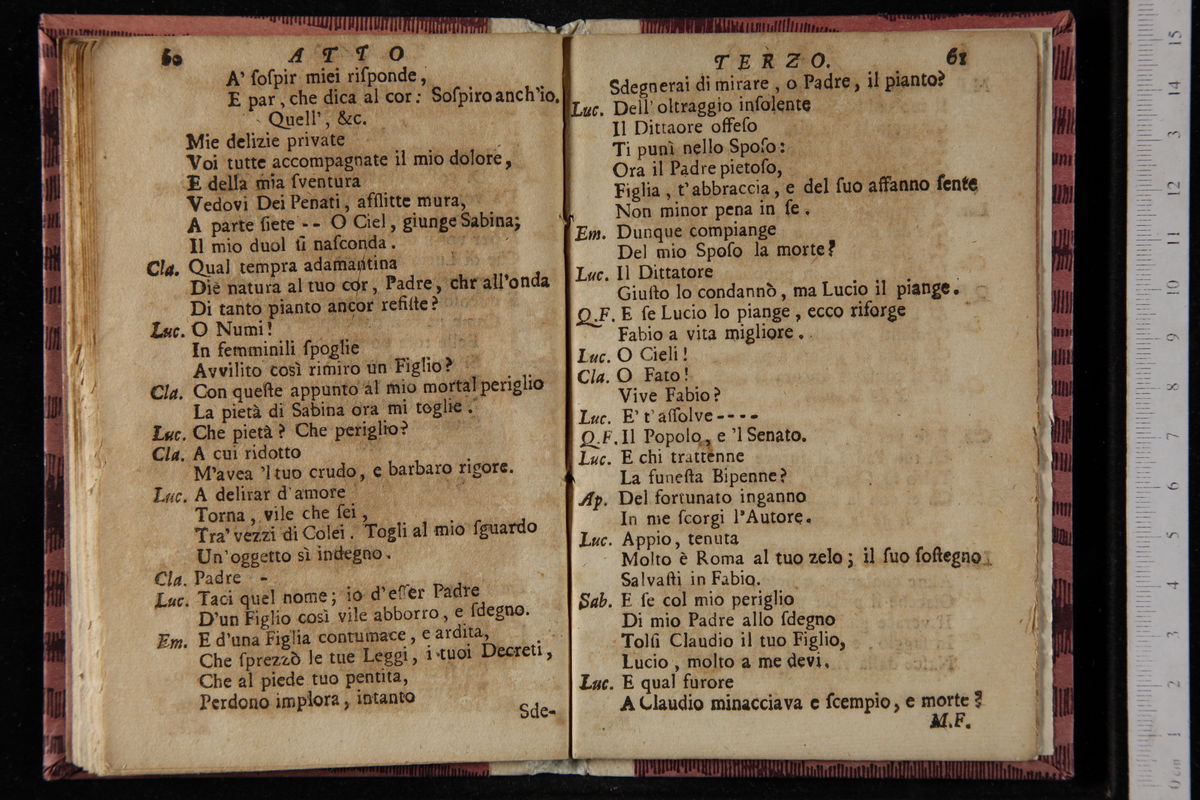 60 ATTO
A' ſoſpir miei riſponde,
E par, che dica al cor: Soſpiro anch'io.
Quell', &c.
Mie delizie private
Voi tutte accompagnate il mio dolore,
E della mia ſventura
Vedovi Dei Penati, afflitte mura,
A parte ſiete -- O Ciel, giunge Sabina;
Il mio duol ſi naſconda.
Cla. Qual tempra adamantina
Diè natura al tuo cor, Padre, chr all'onda
Di tanto pianto ancor reſiſte?
Luc. O Numi!
In femminili ſpoglie
Avvilito così rimiro un Figlio?
Cla. Con queſte appunto al mio mortal periglio
La pietà di Sabina ora mi toglie.
Luc. Che pietà? Che periglio?
Cla. A cui ridotto
M'avea 'l tuo crudo, e barbaro rigore.
Luc. A delirar d'amore
Torna, vile che ſei,
Tra' vezzi di Colei. Togli al mio ſguardo
Un'oggetto sì indegno.
Cla. Padre -
Luc. Taci quel nome; io d'eſſer Padre
D'un Figlio così vile abborro, e ſdegno.
Em. E d'una Figlia contumace, e ardita,
Che ſprezzò le tue Leggi, i tuoi Decreti,
Che al piede tuo pentita,
Perdono implora, intanto
Sde-
TERZO. 61
Sdegnerai di mirare, o Padre, il pianto?
Luc. Dell'oltraggio inſolente
Il Dittaore offeſo
Ti punì nello Spoſo:
Ora il Padre pietoſo,
Figlia, t'abbraccia, e del ſuo affanno ſente
Non minor pena in ſe.
Em. Dunque compiange
Del mio Spoſo la morte?
Luc. Il Dittatore
Giuſto lo condannò, ma Lucio il piange.
Q.F. E ſe Lucio lo piange, ecco riſorge
Fabio a vita migliore.
Luc. O Cieli!
Cla. O Fato!
Vive Fabio?
Luc. E' t'aſſolve----
Q.F. Il Popolo, e 'l Senato.
Luc. E chi trattenne
La funeſta Bipenne?
Ap. Del fortunato inganno
In me ſcorgi l'Autore.
Luc. Appio, tenuta
Molto è Roma al tuo zelo; il ſuo ſoſtegno
Salvaſti in Fabio.
Sab. E ſe col mio periglio
Di mio Padre allo ſdegno
Tolſi Claudio il tuo Figlio,
Lucio, molto a me devi.
Luc. E qual furore
A Claudio minacciava e ſcempio, e morte?
M.F.